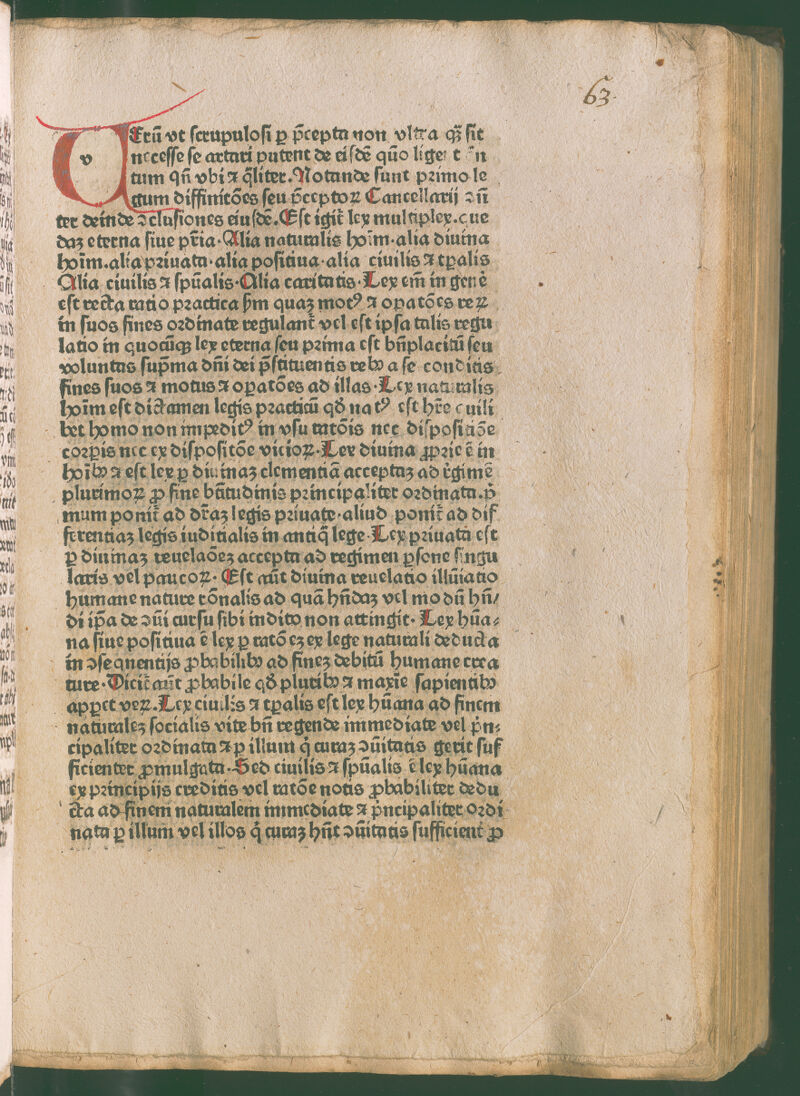 63.
VErū vt scrupulosi ꝑ p̄cepta non vltra qȝ sit
necesse se artari putent de eisdē qūo liget t n
tum qn̄ vbi ⁊ q̄liter. Notande sunt primo le
gum diffinitōes seu p̄ceptoꝝ Cancellarij ꝯn̄
ter deinde ꝯclusiones eiusdē. Est igit̄ lex multiplex. que
daȝ eterna siue pr̄ia. Alia naturalis hoīm. alia diuina
hoīm. alia priuata. alia positiua. alia ciuilis ⁊ tꝑalis
Alia ciuilis ⁊ spūalis. Alia caritatis. Lex em̄ in genē
est recta ratio practica ẜm quaȝ motꝰ ⁊ oꝑatōes reꝝ
in suos fines ordinate regulant̄ vel est ipsa talis regu
latio in quocūqȝ lex eterna seu prima est bn̄placitū seu
voluntas sup̄ma dn̄i dei p̄stituentis rebꝰ a se conditis
fines suos ⁊ motus ⁊ oꝑatōes ad illas. Lex naturalis
hoīm est dictamen legis practicū qd̄ natꝰ est hr̄e cuili
bet homo non impeditꝰ in vsu ratōis nec dispositiōe
corꝑis nec ex dispositōe vicioꝝ. Lex diuina ꝓprie ē in
hoībꝰ ⁊ est lex ꝑ diuinaȝ clementiā acceptaȝ ad regimē
plurimoꝝ ꝓ fine bt̄itudinis principaliter ordinata. p̄
mum ponit̄ ad dr̄aȝ legis priuate. aliud ponit̄ ad dif
ferentiaȝ legis iuditialis in antiq̄ lege. Lex priuata est
ꝑ diuinaȝ reuelaōeȝ accepta ad regimen ꝑsone singu
laris vel paucoꝝ. Est aūt diuina reuelatio illūiatio
humane nature rōnalis ad quā hn̄daȝ vel modū hn̄/
di ip̄a de ꝯūi cursu sibi indito non attingit. Lex hūa⸗
na siue positiua ē lex ꝑ ratōeȝ ex lege naturali deducta
in ꝯsequentijs ꝓbabilibꝰ ad fineȝ debitū humane crea
ture. Dicit̄ aūt ꝓbabile qd̄ pluribꝰ ⁊ maxīe sapientibꝰ
apꝑet veꝝ. Lex ciuilis ⁊ tꝑalis est lex hūana ad finem
naturaleȝ socialis vite bn̄ regende immediate vel p̄n⸗
cipaliter ordinata ⁊ ꝑ illum q̇ curaȝ ꝯūitatis gerit suf
ficienter ꝓmulgata. Sed ciuilis ⁊ spūalis ē lex hūana
ex principijs creditis vel ratōe notis ꝓbabiliter dedu
cta ad finem naturalem immediate ⁊ p̄ncipaliter ordi
nata ꝑ illum vel illos q̇ curaȝ hn̄t ꝯūitatis sufficient̄ ꝓ